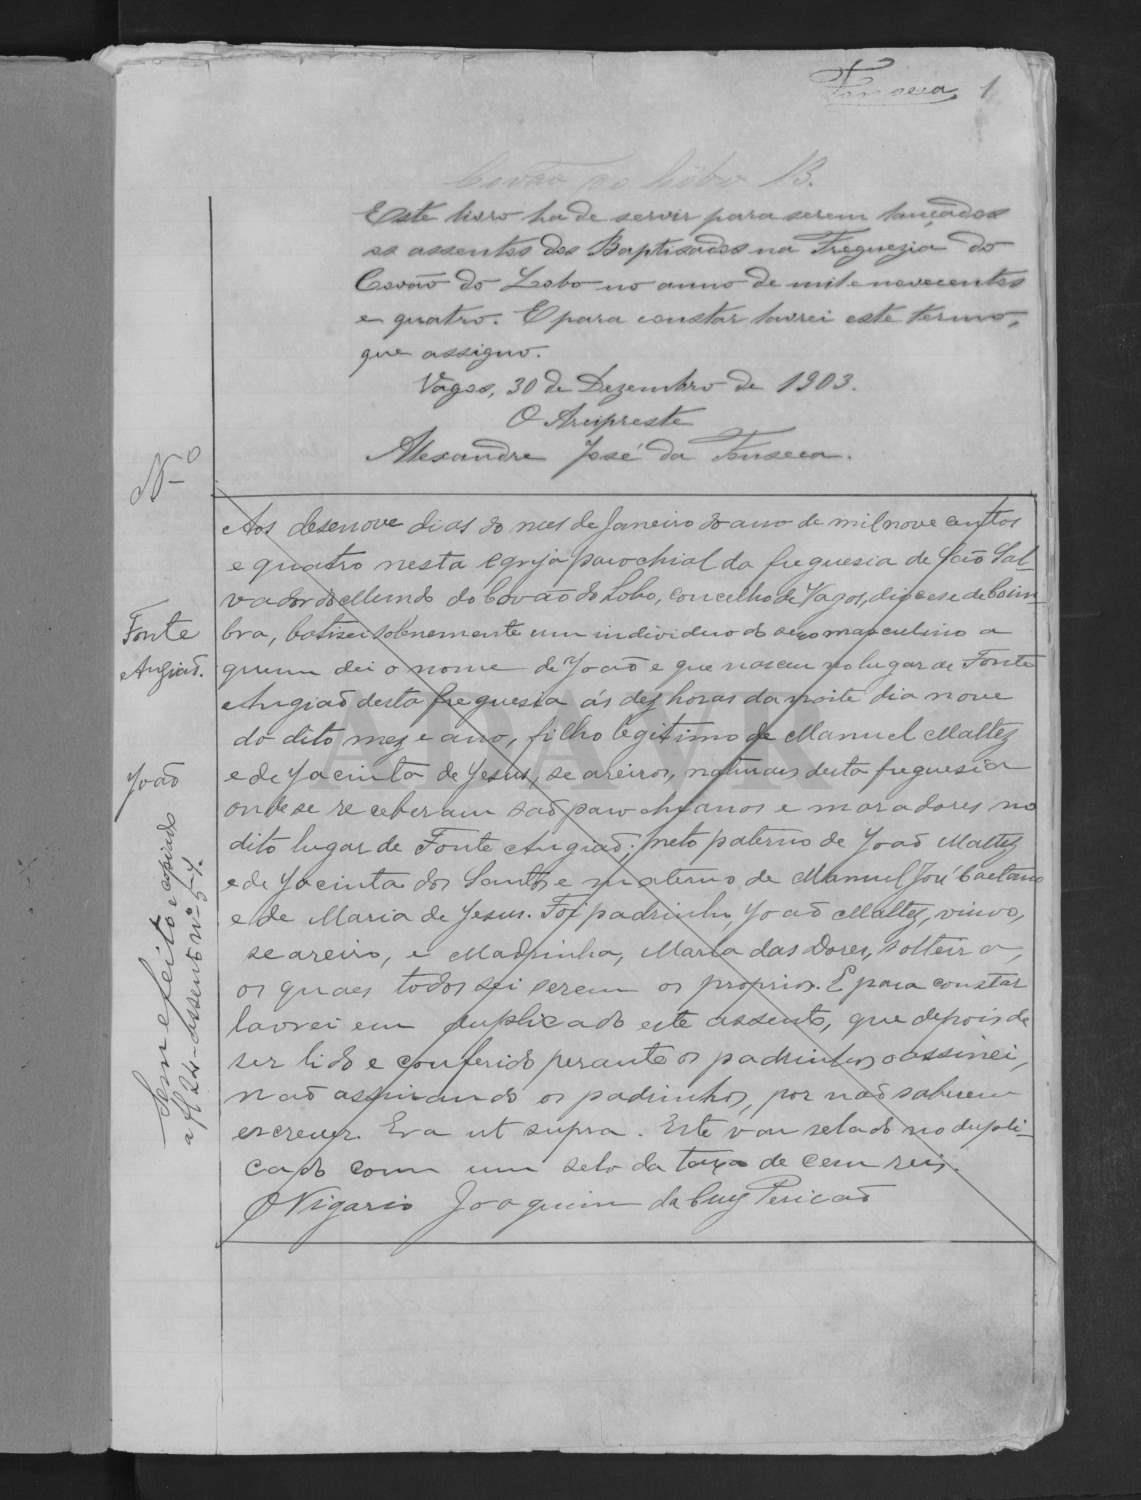 Fonseca 1
Covão do Lobo B.
Este livro ha de servir para serem lançados
os assentos dos Baptisados na Freguezia do
Covão do Lobo no anno de mil e novecentos
e quatro. E para constar lavrei este termo,
que assigno.
Vagos, 30 de Dezembro de 1903.
O Arcipreste
Alexandre José da Fonseca.
Nº
Fonte
Angiaõ.
João
Sem efeito e copiado
a fl 24-assento nº 57.
Aos desenove dias do mes de Janeiro do ano de mil nove centos
e quatro nesta egreja parochial da freguesia de São Sal-
vador do Mundo do Covão do Lobo, concelho de Vagos, diocese de Coim-
bra, batisei solenemente um individuo do sexo masculino a
quem dei o nome de João e que nasceu no lugar de Fonte
Angiaõ desta freguesia ás dez horas da noite dia nove
do dito mez e ano, filho legitimo de Manuel Maltez
e de Jacinta de Jesus, seareiros, naturaes desta freguesia
onde se receberam saõ parochianos e moradores no
dito lugar de Fonte Angiaõ; neto paterno de Joaõ Maltez
e de Jacinta dos Santos e materno de Manuel José Caetano
e de Maria de Jesus. Foi padrinho, Joaõ Maltez, viuvo,
seareiro, e Madrinha, Maria das Dores, solteira,
os quaes todos sei serem os proprios. E para constar
lavrei em duplicado este assento, que depois de
ser lido e conferido perante os padrinhos o assinei,
naõ assinando os padrinhos, por naõ saberem
escrever. Era ut supra. Este vau selado no dupli-
cado com um selo da taxa de cem reis.
O Vigario Joaquim da Cruz Pericaõ
ADAVR